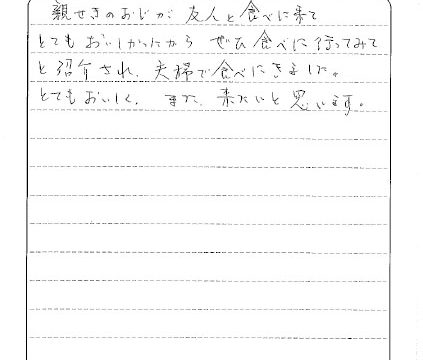 親せきのおじが 友人と食べに来て
とてもおいしかったから ぜひ食べに行ってみて
と紹介され、夫婦で食べにきました。
とてもおいしく、また、来たいと思います。